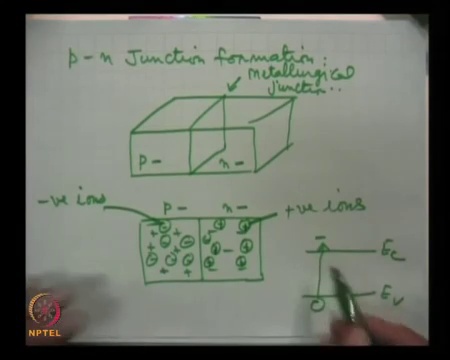 p - n Junction formation:
metallurgical
junction..
p - n -
-ve ions p - n - +ve ions
Ec
Ev
NPTEL